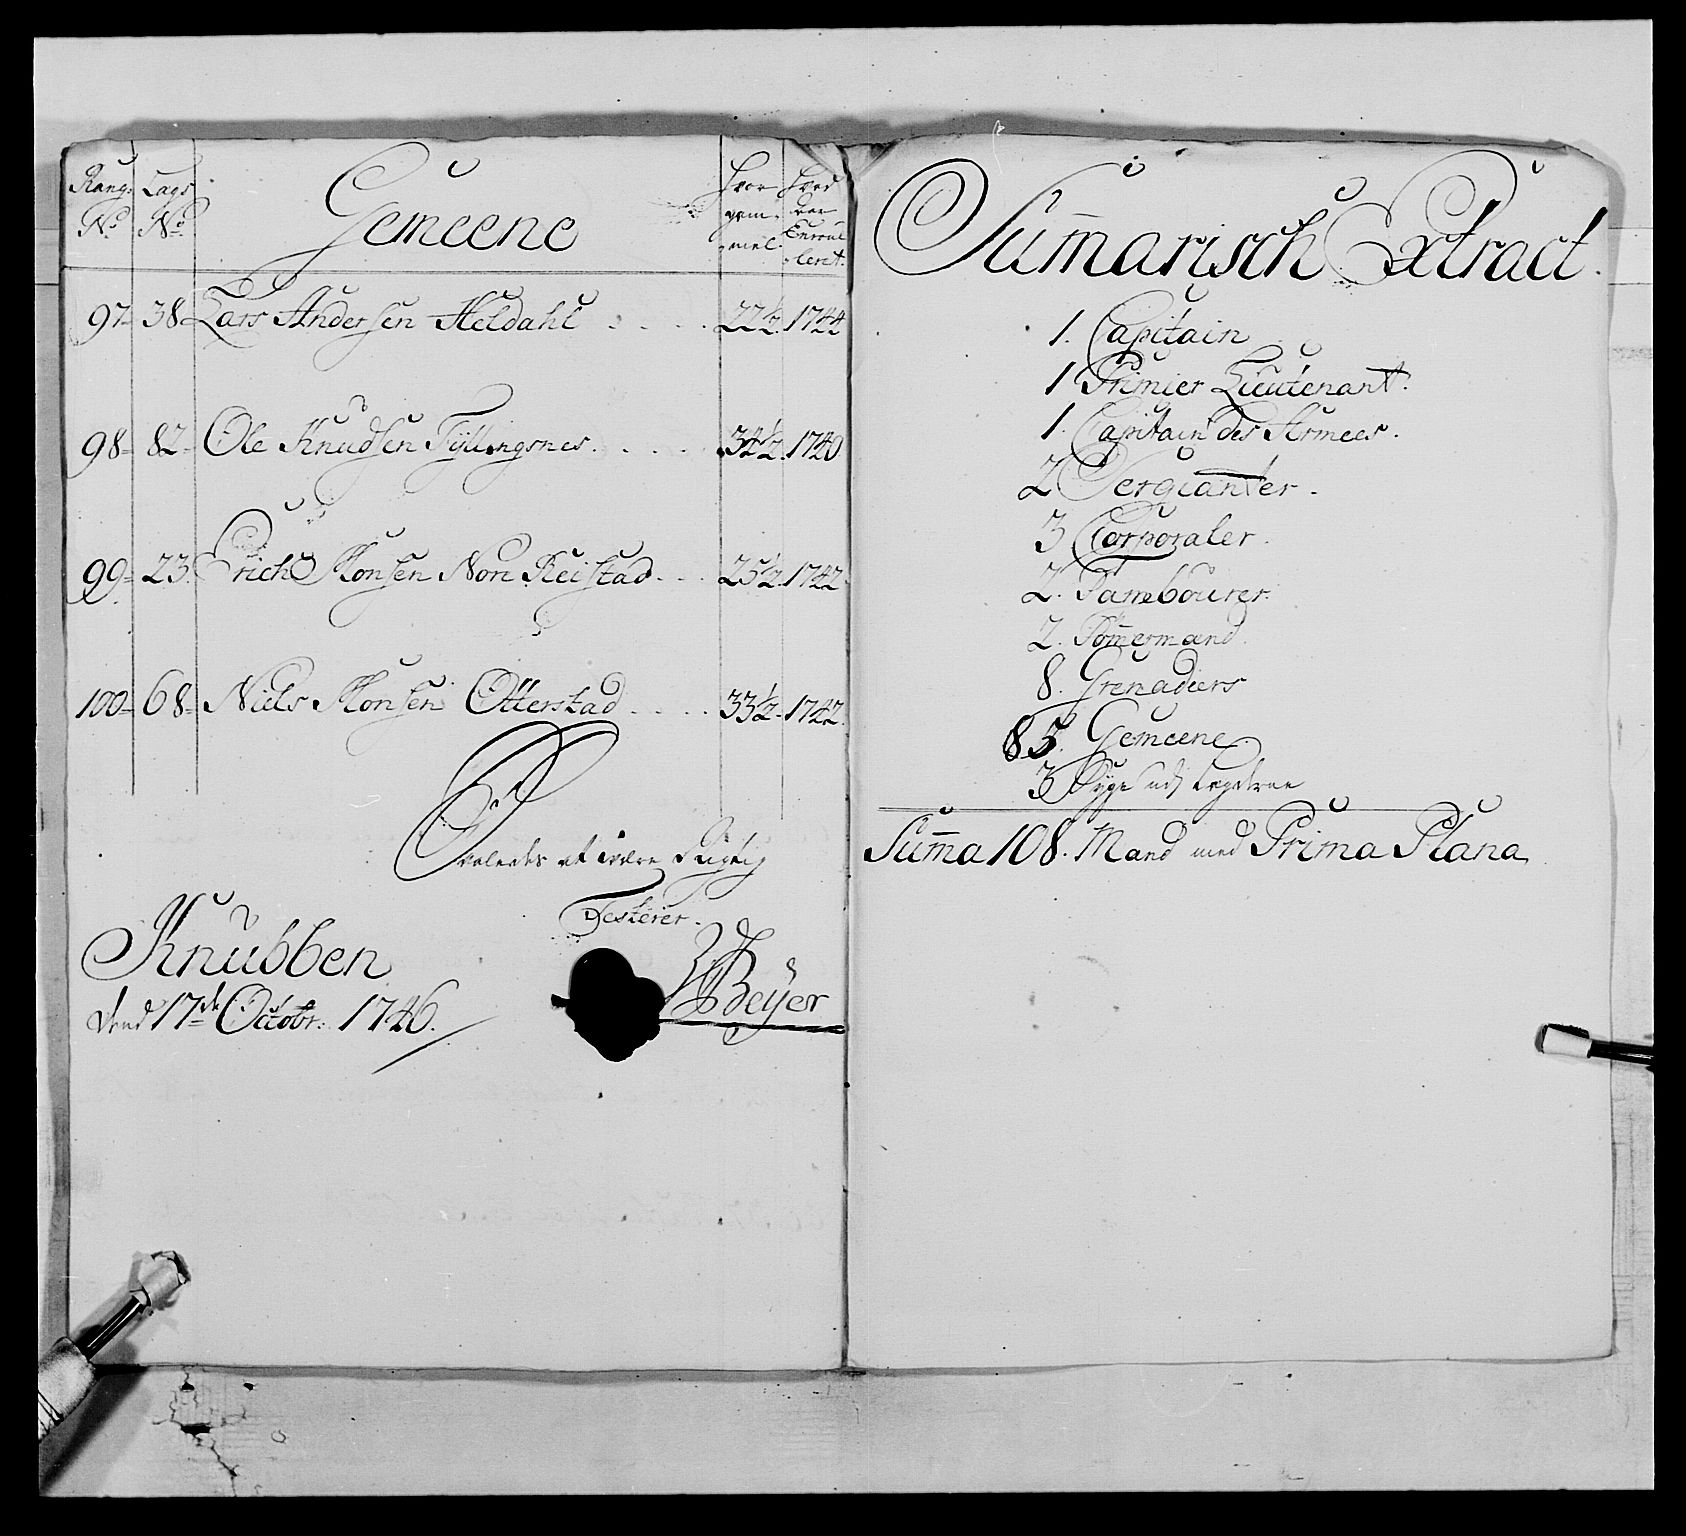 Rang: Lags Gemeene Hvor Hvad
No No gam- Aar
mel. Enroul
leret.
97 38 Lars Andersen Heldahl 22½ 1744
98 82 Ole Knudsen Tyllingsnes 34½ 1740
99 23 Erich Monsen Non Reistad 25½ 1742
100 68 Niels Monsen Otterstad 33½ 1742
Saaledes at være Rigtig
Testerer.
Knubben
dend 17de Octobr: 1746.
Beyer
Sum̅arisch Extract.
1. Capitain
1 Primier Lieutenant.
1. Capitain des Armees.
2 Sergianter.
3 Corporaler.
2. Tambourer.
2. Tøm̅ermænd.
8. Grenadiers
85. Gemeene.
3 Syge udj Legderne
Sum̅a 108. Mand med Prima Plana